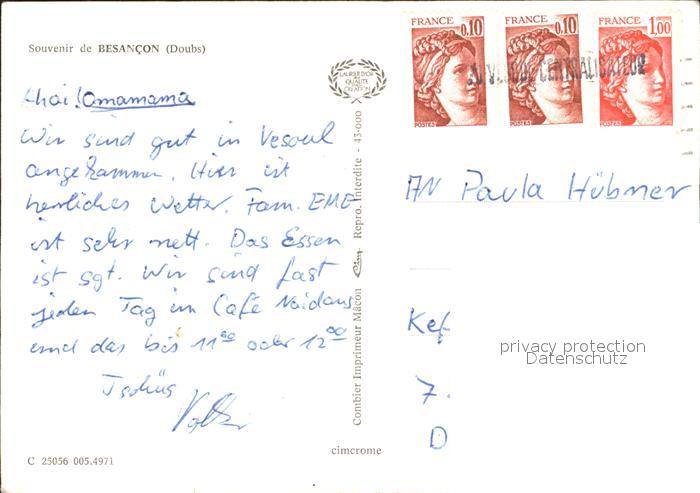 Souvenir de BESANÇON (Doubs)
Omamama
Wir sind gut in Vesoul
angekommen. Hier ist
herrliches Wetter. Fam. EME
ist sehr nett. Das Essen
ist sgt. Wir sind fast
jeden Tag im Café Noidans
und das bis 11⁰⁰ oder 12⁰⁰
Tschüs
C 25056 005.4971
cimcrome
Combier Imprimeur Mâcon Cim Repro. Interdite - 43-000
LAURIER D'OR
DE
QUALITÉ
CRÉATION
FRANCE 0,10 POSTES
FRANCE 0,10 POSTES
FRANCE 1,00 POSTES
CENTRALISATEUR
AN Paula Hübner
Kef
7.
D
privacy protection
Datenschutz